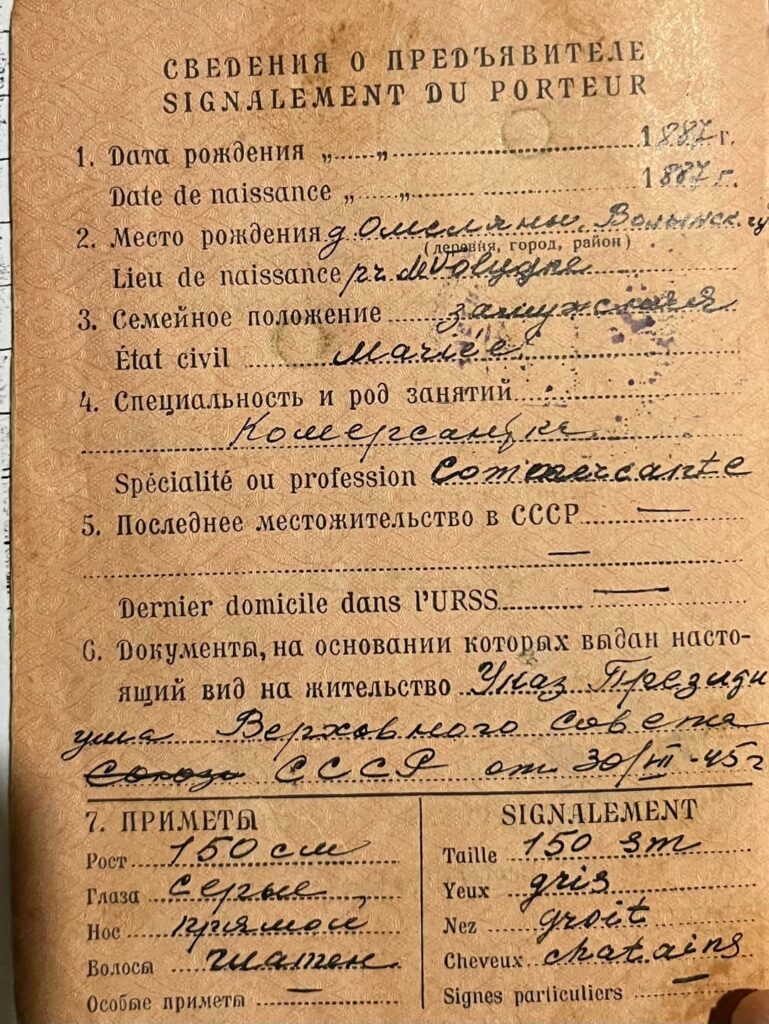 СВЕДЕНИЯ О ПРЕДЪЯВИТЕЛЕ
SIGNALEMENT DU PORTEUR
1. Дата рождения „......„ 1887 г.
Date de naissance „......„ 1887 г.
2. Место рождения д. Омеляны. Волынск. гу
(деревня, город, район)
Lieu de naissance
3. Семейное положение замужняя
État civil Mariée
4. Специальность и род занятий
Комерсантка
Spécialité ou profession Commercante
5. Последнее местожительство в СССР —
—
Dernier domicile dans l'URSS —
6. Документы, на основании которых выдан насто-
ящий вид на жительство Указ Президи
ума Верховного Совета
Союза СССР от 30/III-45г
7. ПРИМЕТЫ
Рост 150 см
Глаза серые
Нос прямой
Волосы шатен
Особые приметы —
SIGNALEMENT
Taille 150 sm
Yeux gris
Nez groit
Cheveux chatains
Signes particuliers —